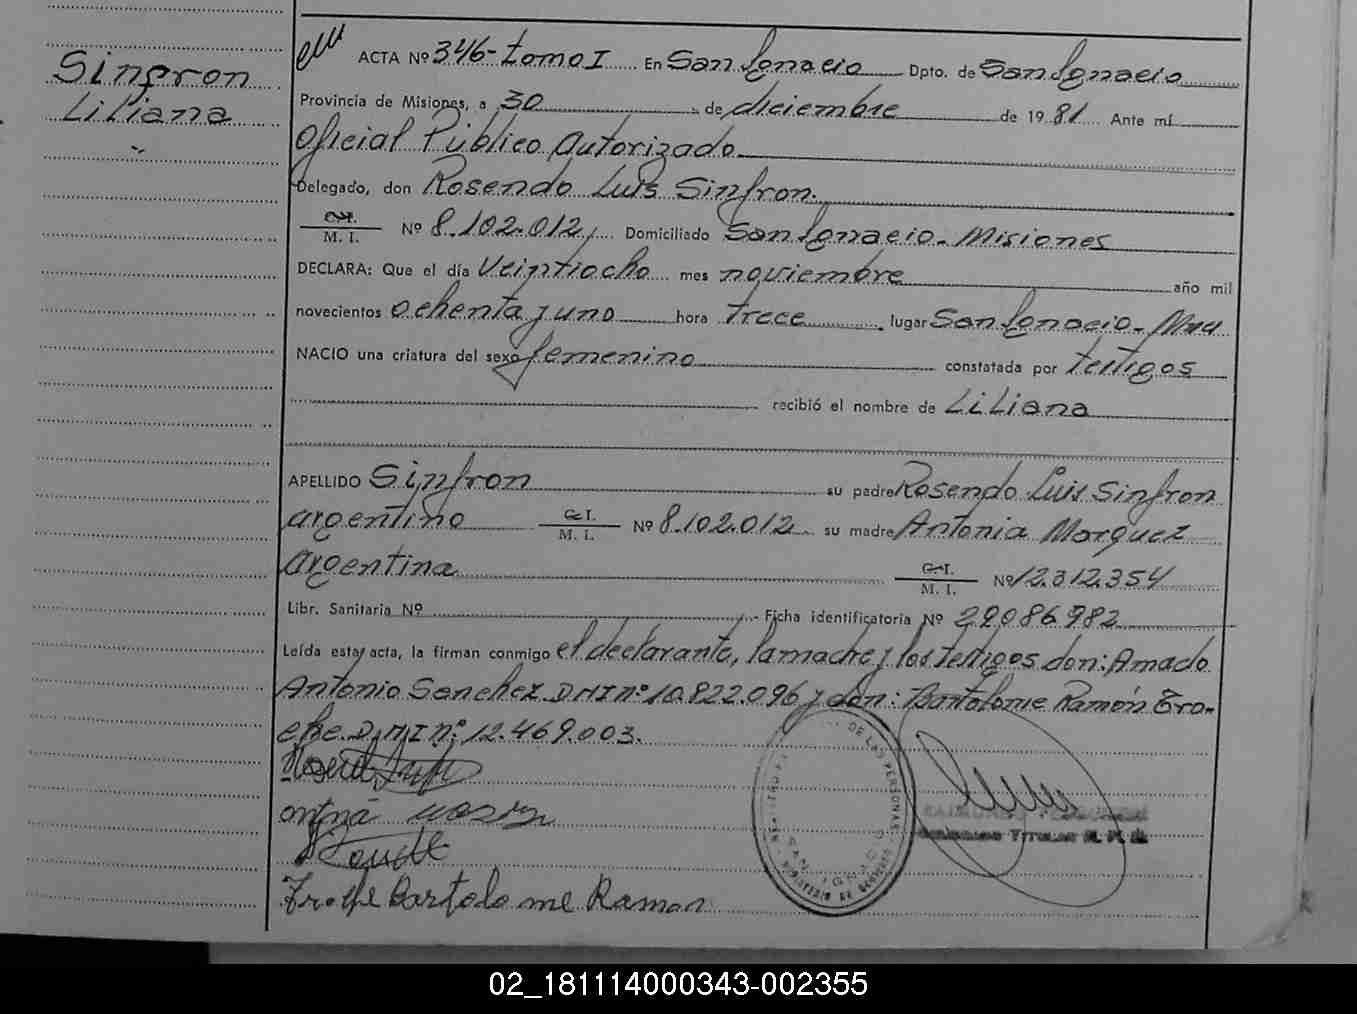 Sinfron
Liliana
ACTA Nº 346-tomo I En San Ignacio Dpto. de San Ignacio
Provincia de Misiones, a 30 de diciembre de 1981 Ante mí
Oficial Público Autorizado
Delegado, don Rosendo Luis Sinfron.
C.I.
M. I. Nº 8.102.012, Domiciliado San Ignacio - Misiones
DECLARA: Que el día Veintiocho mes noviembre año mil
novecientos ochenta y uno hora trece lugar San Ignacio - Mnes
NACIO una criatura del sexo femenino constatada por testigos
recibió el nombre de Liliana
APELLIDO Sinfron su padre Rosendo Luis Sinfron
argentino C.I. M. I. Nº 8.102.012 su madre Antonia Marquez
argentina C.I. M. I. Nº 12.312.354
Libr. Sanitaria Nº Ficha identificatoria Nº 29086982
Leída esta acta, la firman conmigo el declarante, la madre y los testigos don: Amado
Antonio Sanchez DMI nº 10.822.096 y don: Bartolome Ramón Tro-
che. D.MI nº: 12.469.003.
DE LAS PERSONAS
SAN IGNACIO
Troche Bartolo me Ramon
02_181114000343-002355